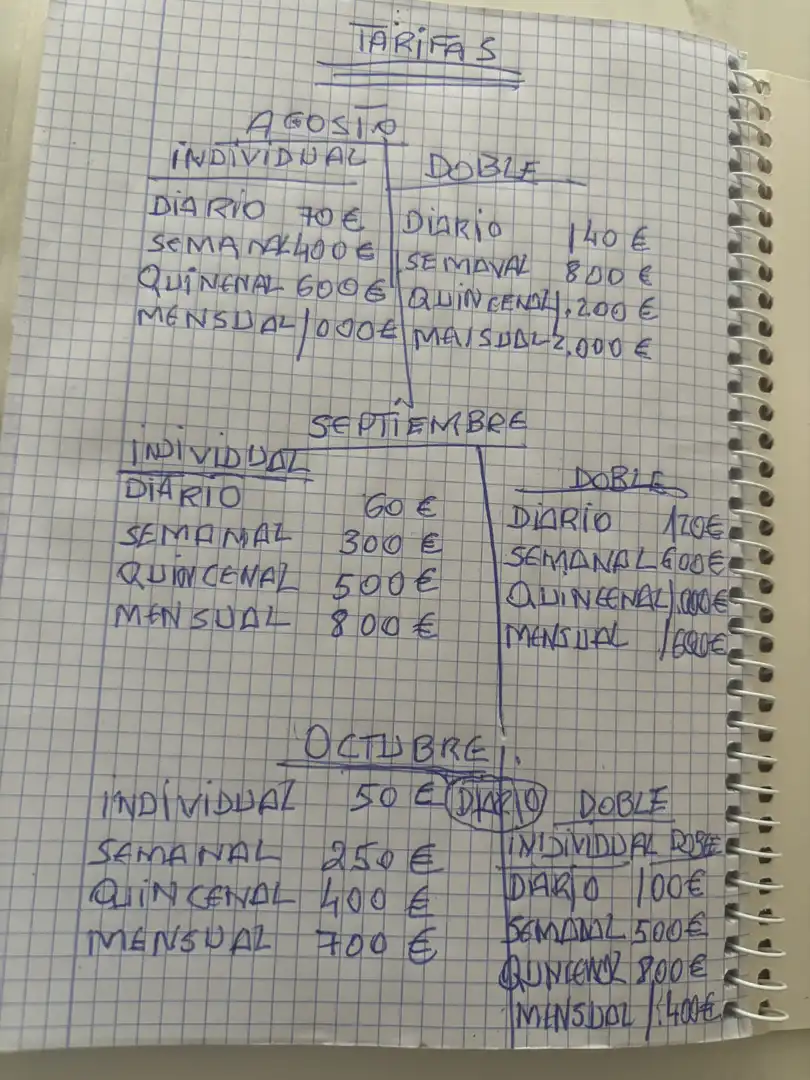 TARIFAS
AGOSTO
INDIVIDUAL
DIARIO 70 €
SEMANAL 400 €
QUINENAL 600 €
MENSUAL 1000 €
DOBLE
DIARIO 140 €
SEMAVAL 800 €
QUINCENAL 1.200 €
MAISUAL 2.000 €
SEPTIEMBRE
INDIVIDUAL
DIARIO 60 €
SEMANAL 300 €
QUINCENAL 500 €
MENSUAL 800 €
DOBLE
DIARIO 120 €
SEMANAL 600 €
QUINCENAL 1.000 €
MENSUAL 1600 €
OCTUBRE
INDIVIDUAL 50 € DIARIO
SEMANAL 250 €
QUINCENAL 400 €
MENSUAL 700 €
DOBLE
INDIVIDUAL
DIARIO 100 €
SEMANAL 500 €
QUNCENAL 800 €
MENSUAL 1.400 €